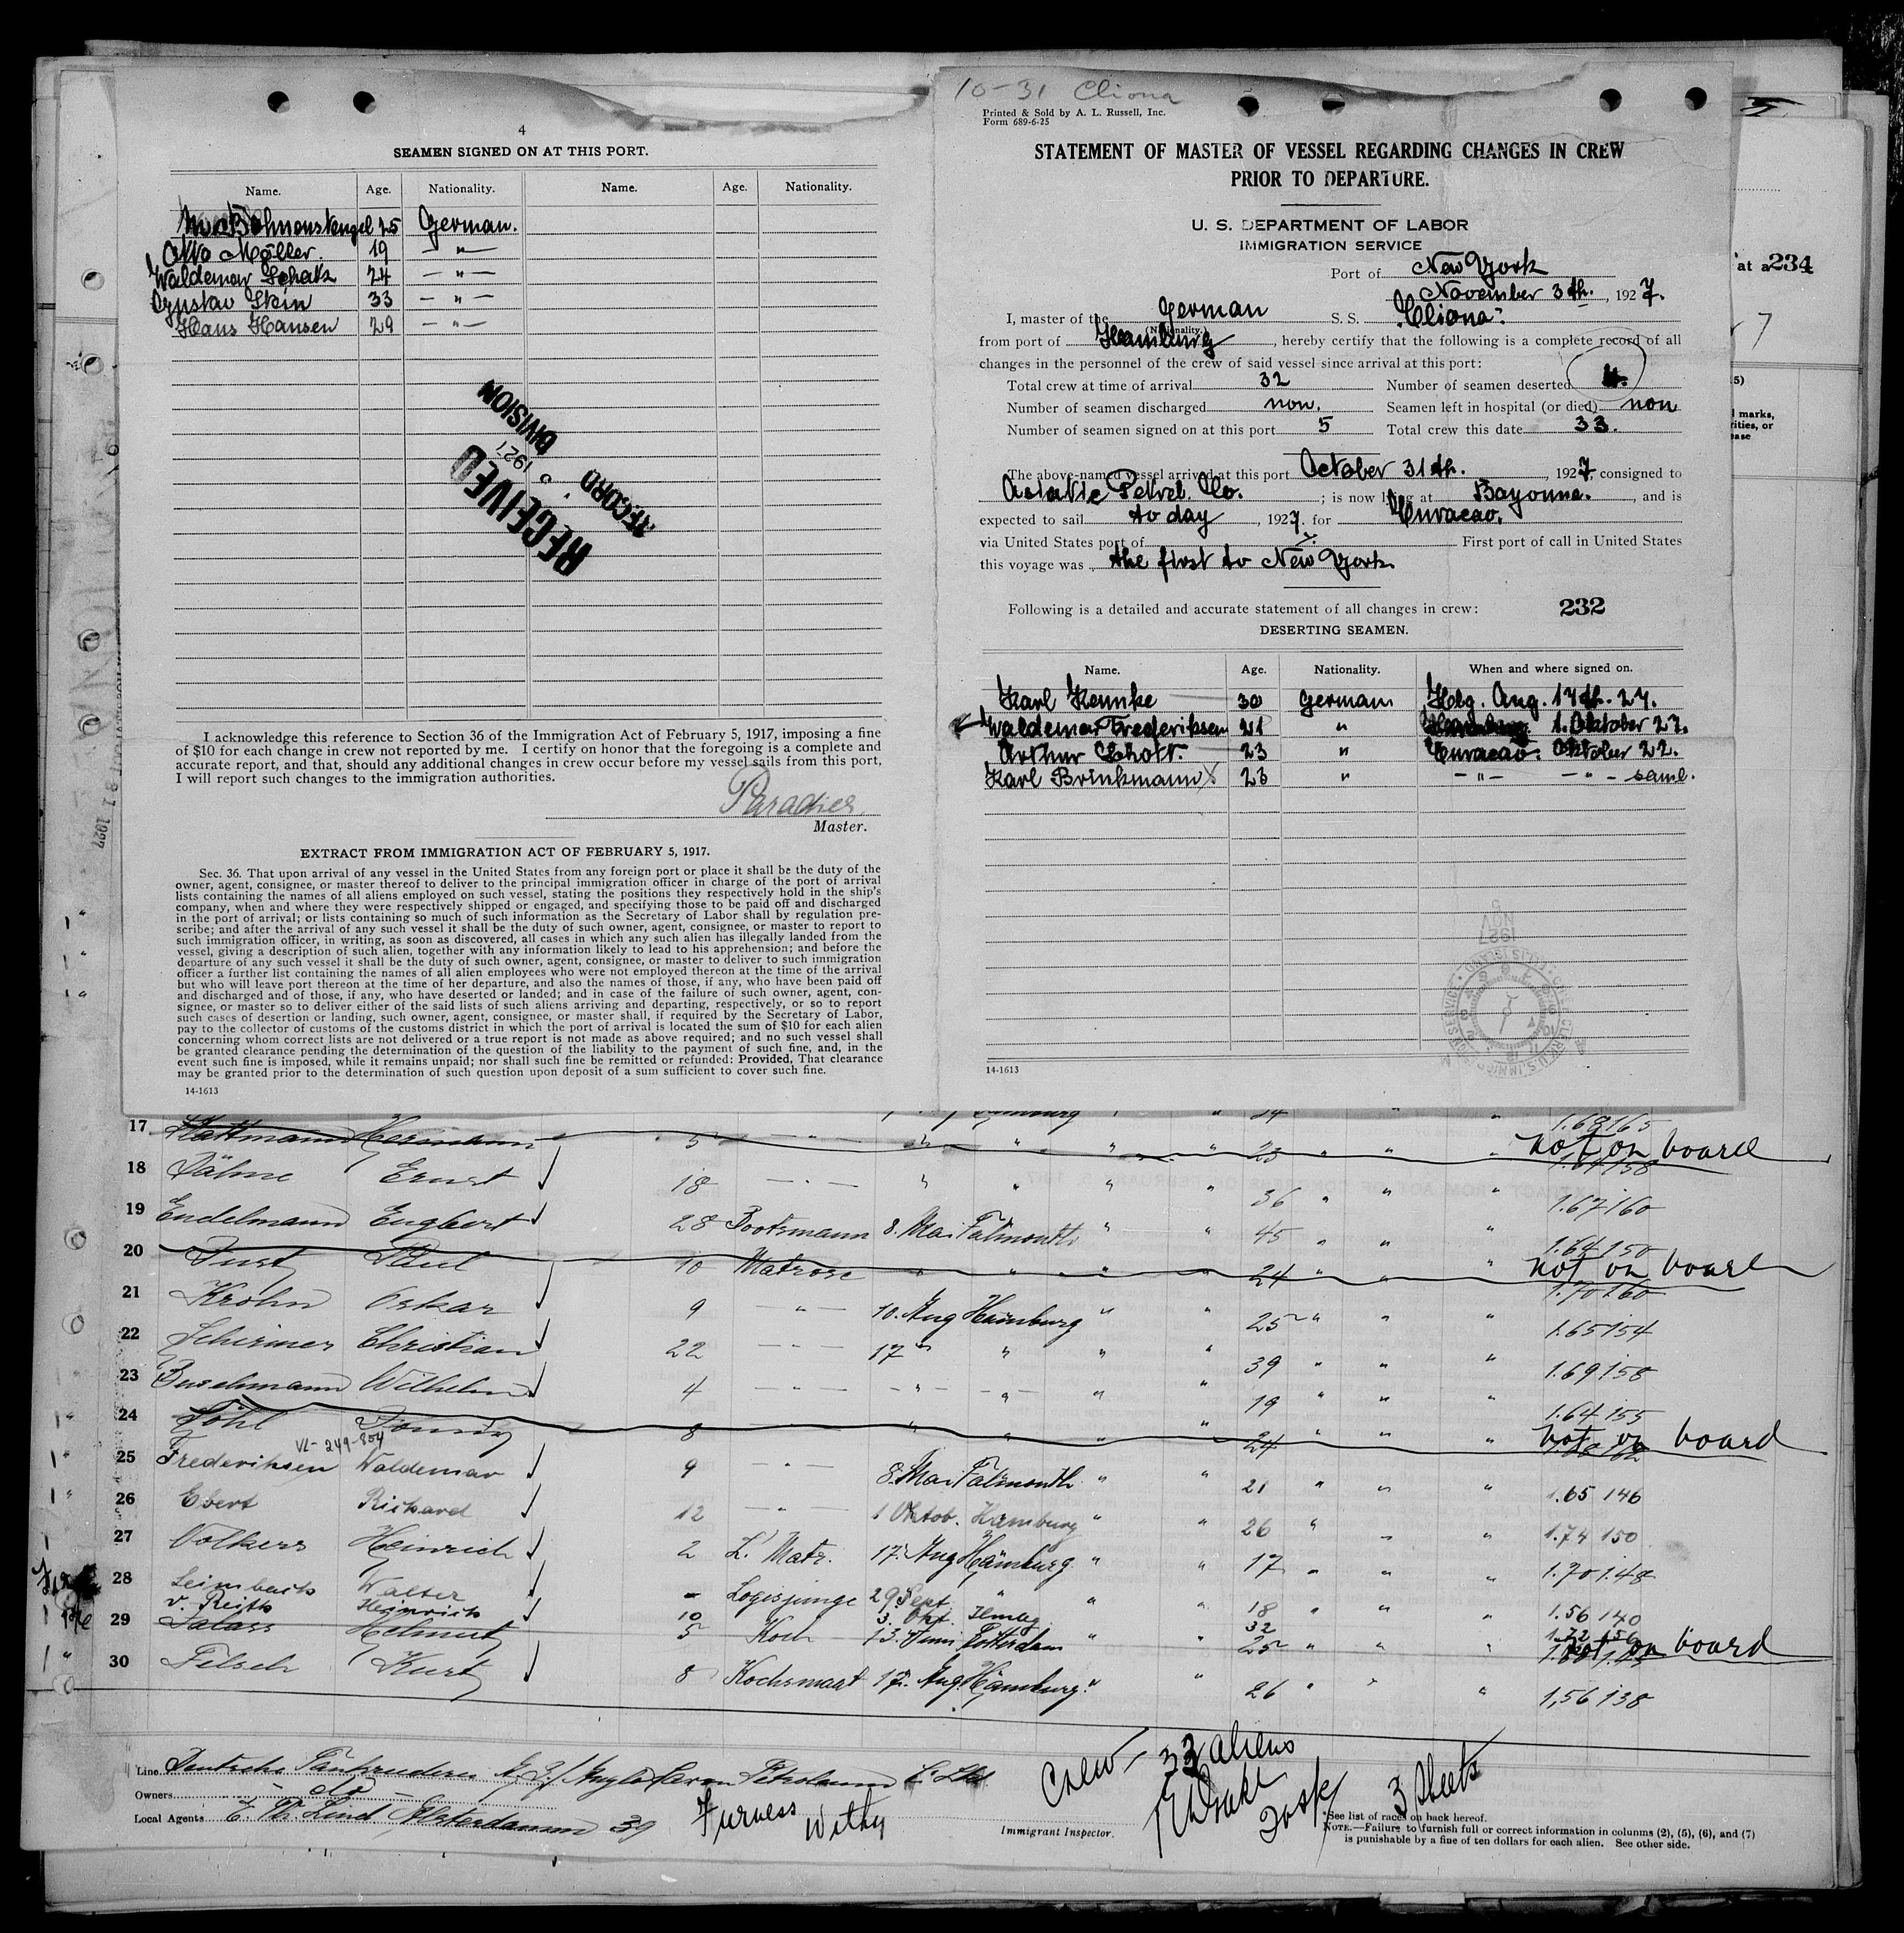 4
SEAMEN SIGNED ON AT THIS PORT.
Name. Age. Nationality. Name. Age. Nationality.
25 German.
Otto Möller. 19 — " —
Waldemar Schatz 24 — " —
Gustav Stein 33 — " —
Hans Hansen 29 — " —
RECEIVED
1927
RECORD
DIVISION
I acknowledge this reference to Section 36 of the Immigration Act of February 5, 1917, imposing a fine
of $10 for each change in crew not reported by me. I certify on honor that the foregoing is a complete and
accurate report, and that, should any additional changes in crew occur before my vessel sails from this port,
I will report such changes to the immigration authorities.
Paradies
Master.
EXTRACT FROM IMMIGRATION ACT OF FEBRUARY 5, 1917.
Sec. 36. That upon arrival of any vessel in the United States from any foreign port or place it shall be the duty of the
owner, agent, consignee, or master thereof to deliver to the principal immigration officer in charge of the port of arrival
lists containing the names of all aliens employed on such vessel, stating the positions they respectively hold in the ship's
company, when and where they were respectively shipped or engaged, and specifying those to be paid off and discharged
in the port of arrival; or lists containing so much of such information as the Secretary of Labor shall by regulation pre-
scribe; and after the arrival of any such vessel it shall be the duty of such owner, agent, consignee, or master to report to
such immigration officer, in writing, as soon as discovered, all cases in which any such alien has illegally landed from the
vessel, giving a description of such alien, together with any information likely to lead to his apprehension; and before the
departure of any such vessel it shall be the duty of such owner, agent, consignee, or master to deliver to such immigration
officer a further list containing the names of all alien employees who were not employed thereon at the time of the arrival
but who will leave port thereon at the time of her departure, and also the names of those, if any, who have been paid off
and discharged and of those, if any, who have deserted or landed; and in case of the failure of such owner, agent, con-
signee, or master so to deliver either of the said lists of such aliens arriving and departing, respectively, or so to report
such cases of desertion or landing, such owner, agent, consignee, or master shall, if required by the Secretary of Labor,
pay to the collector of customs of the customs district in which the port of arrival is located the sum of $10 for each alien
concerning whom correct lists are not delivered or a true report is not made as above required; and no such vessel shall
be granted clearance pending the determination of the question of the liability to the payment of such fine, and, in the
event such fine is imposed, while it remains unpaid; nor shall such fine be remitted or refunded: Provided, That clearance
may be granted prior to the determination of such question upon deposit of a sum sufficient to cover such fine.
14-1613
10-31 Cliona
Printed & Sold by A. L. Russell, Inc.
Form 689-6-25
STATEMENT OF MASTER OF VESSEL REGARDING CHANGES IN CREW
PRIOR TO DEPARTURE.
U. S. DEPARTMENT OF LABOR
IMMIGRATION SERVICE
Port of New York
November 3th. , 1927.
I, master of the German S. S. "Cliona"
(Nationality.)
from port of Hamburg , hereby certify that the following is a complete record of all
changes in the personnel of the crew of said vessel since arrival at this port:
Total crew at time of arrival 32 Number of seamen deserted 4.
Number of seamen discharged non. Seamen left in hospital (or died) non
Number of seamen signed on at this port 5 Total crew this date 33.
The above-named vessel arrived at this port October 31th. , 1927, consigned to
Asiatic Petrol. Co. ; is now lying at Bayonne. , and is
expected to sail to day , 1927. for Curacao.
via United States port of First port of call in United States
this voyage was the first to New York.
Following is a detailed and accurate statement of all changes in crew: 232
DESERTING SEAMEN.
Name. Age. Nationality. When and where signed on.
Karl Kemke 30 German Hbg. Aug. 17th. 27.
Waldemar Frederiksen 21 " 1. Oktober 27.
Arthur Schott. 23 " Curacao. Oktober 22.
Karl Brinkmann 23 " — " — — " — same.
1927
NOV
5
14-1613
at a 234
7
marks,
17 Hermann 5 — " — " " " " 23 " " " not on board
18 Dähne Ernst 18 — " — " " " " 36 " " " 1.67 160
19 Endelmann Engbert 28 Bootsmann 8. Mai Falmouth " " 45 " " " 1.64 150
20 Just Paul 10 Matrose " " " " 24 " " " not on board
21 Krohn Oskar 9 — " — 10. Aug Hamburg " " 25 " " " 1.65 154
22 Schirmer Christian 22 — " — 17 " " " " 39 " " " 1.69 158
23 Buschmann Wilhelm 4 — " — — " — — " — " " 19 " " " 1.64 155
24 8 " " " 24 " " " not on board
VL-249-804
25 Frederiksen Waldemar 9 — " — 8. Mai Falmouth " " 21 " " " 1.65 146
26 Ebert Richard 12 — " — 1 Oktob. Hamburg " " 26 " " " 1.74 150
27 Volkers Heinrich 2 L. Matr. 17. Aug Hamburg " " 17 " " " 1.70 148
28 Leimbach Walter – Logisjunge 29 Sept " " " 18 " " " 1.56 140
v. Reith Heinrich 10 3. Okt. Hmbg 32
29 Helmut 5 Koch 13. Juni Rotterdam " " 25 " " " not on board
30 Filsch Kurt 8 Kochsmaat 17. Aug. Hamburg " " 26 " " " 1,56 138
Line Deutsche
Owners do
Local Agents
Furness Withy
Crew - 33 aliens
3 Sheets
Immigrant Inspector.
*See list of races on back hereof.
NOTE.—Failure to furnish full or correct information in columns (2), (5), (6), and (7)
is punishable by a fine of ten dollars for each alien. See other side.